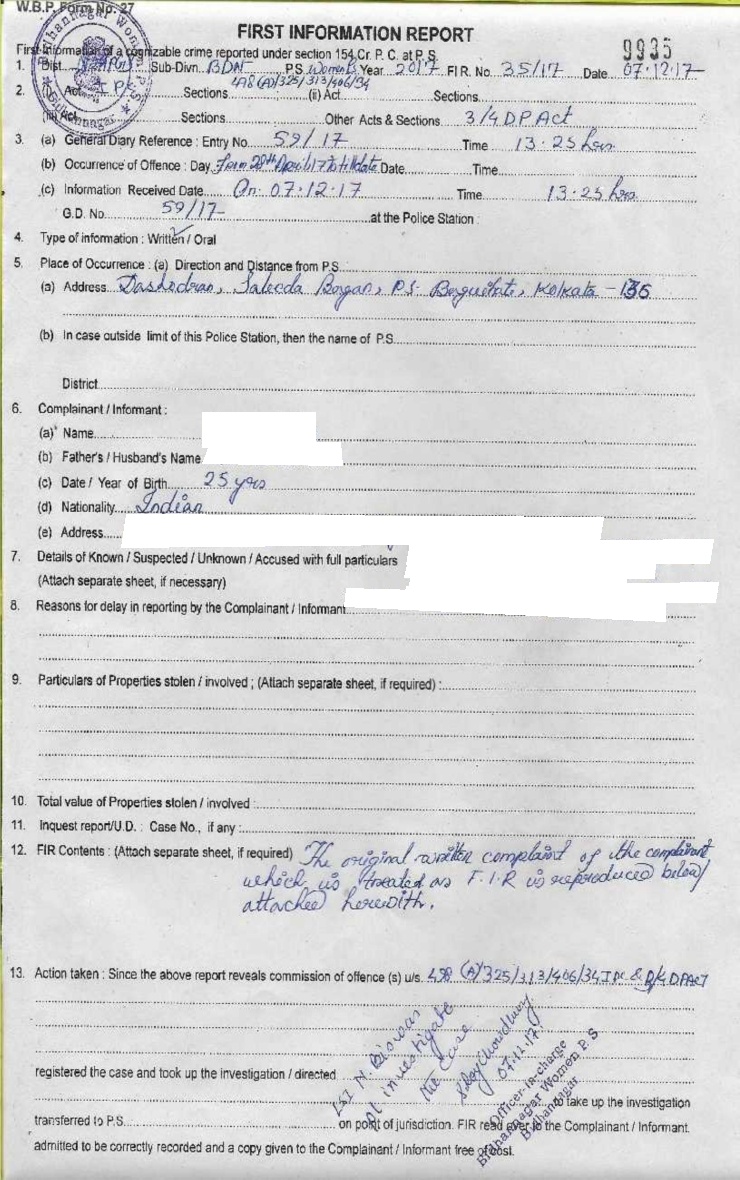 W.B.P. Form No. 27
FIRST INFORMATION REPORT
9935
First Information of a cognizable crime reported under section 154 Cr. P. C. at P. S.
1. Dist. Sub-Divn. BDN P.S. Women P.S Year 2017 FIR. No 35/17 Date 07.12.17
498(A)/325/313/406/34
2. (i) Act IPC Sections (ii) Act Sections
(iii) Act Sections Other Acts & Sections 3/4 DP Act
3. (a) General Diary Reference : Entry No. 59/17 Time 13.25 hrs
(b) Occurrence of Offence : Day From 28th April 17 to till date Date Time
(c) Information Received Date On. 07.12.17 Time 13.25 hrs
G.D. No. 59/17 at the Police Station :
4. Type of information : Written / Oral
5. Place of Occurrence : (a) Direction and Distance from P.S.
(a) Address Dashadran, P.S- Baguihati, Kolkata - 136
(b) In case outside limit of this Police Station, then the name of P.S.
District
6. Complainant / Informant :
(a) Name
(b) Father's / Husband's Name
(c) Date / Year of Birth 25 yrs
(d) Nationality Indian
(e) Address
7. Details of Known / Suspected / Unknown / Accused with full particulars
(Attach separate sheet, if necessary)
8. Reasons for delay in reporting by the Complainant / Informant
9. Particulars of Properties stolen / involved ; (Attach separate sheet, if required) :
10. Total value of Properties stolen / involved :
11. Inquest report/U.D. : Case No., if any :
12. FIR Contents : (Attach separate sheet, if required) The original written complaint of the complainant
which is treated as F.I.R is reproduced below/
attached herewith.
13. Action taken : Since the above report reveals commission of offence (s) u/s. 498(A)/325/313/406/34 IPC & 3/4 DP ACT
LSI N. Biswas
pl investigate
the case
07.12.17
Officer-in-charge
Bidhannagar Women P.S
Bidhannagar
registered the case and took up the investigation / directed
to take up the investigation
transferred to P.S. on point of jurisdiction. FIR read over to the Complainant / Informant.
admitted to be correctly recorded and a copy given to the Complainant / Informant free of cost.